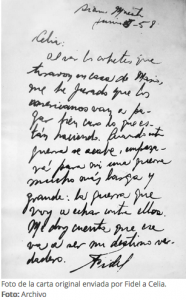 Sierra Maestra
Junio 5-58
Celia:
Al ver los cohetes que
tiraron en casa de Mario,
me he jurado que los
americanos van a pa-
gar bien caro lo que es-
tán haciendo. Cuando esta
guerra se acabe, empeza-
rá para mi una guerra
mucho más larga y
grande: la guerra que
voy a echar contra ellos.
Me doy cuenta que ese
va a ser mi destino ver-
dadero.
Fidel
Foto de la carta original enviada por Fidel a Celia.
Foto: Archivo